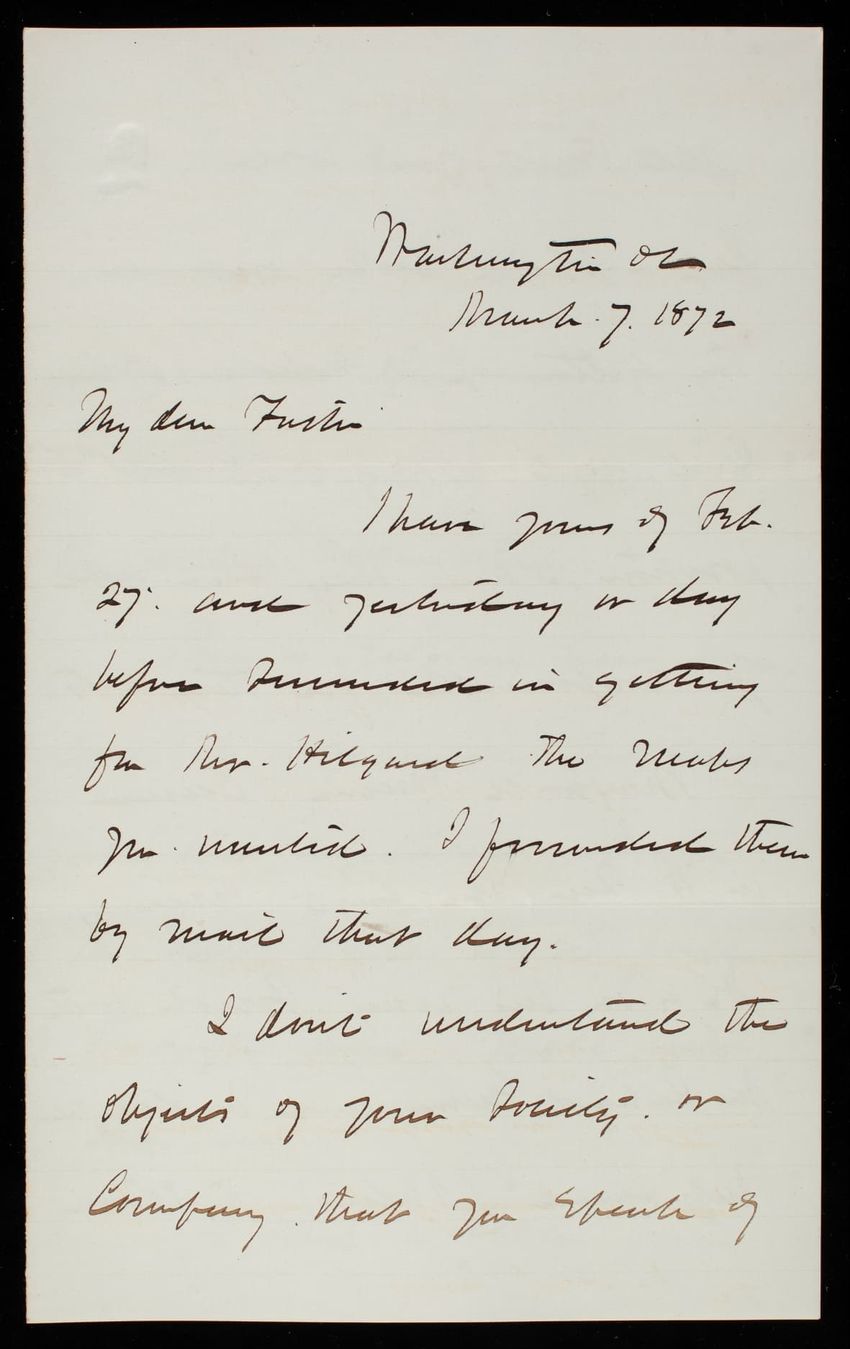 Washington DC
March 7. 1872
My dear Foster
I have yours of Feb.
27. and yesterday or day
before succeeded in getting
for Mr. Hilgard the maps
you wanted. I forwarded them
by mail that day.
I don't understand the
objects of your Society. or
Company. that you speak of